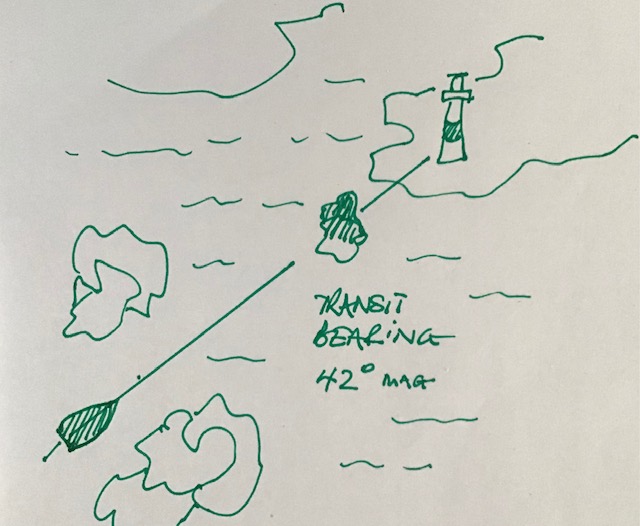 TRANSIT
BEARING
42° MAG